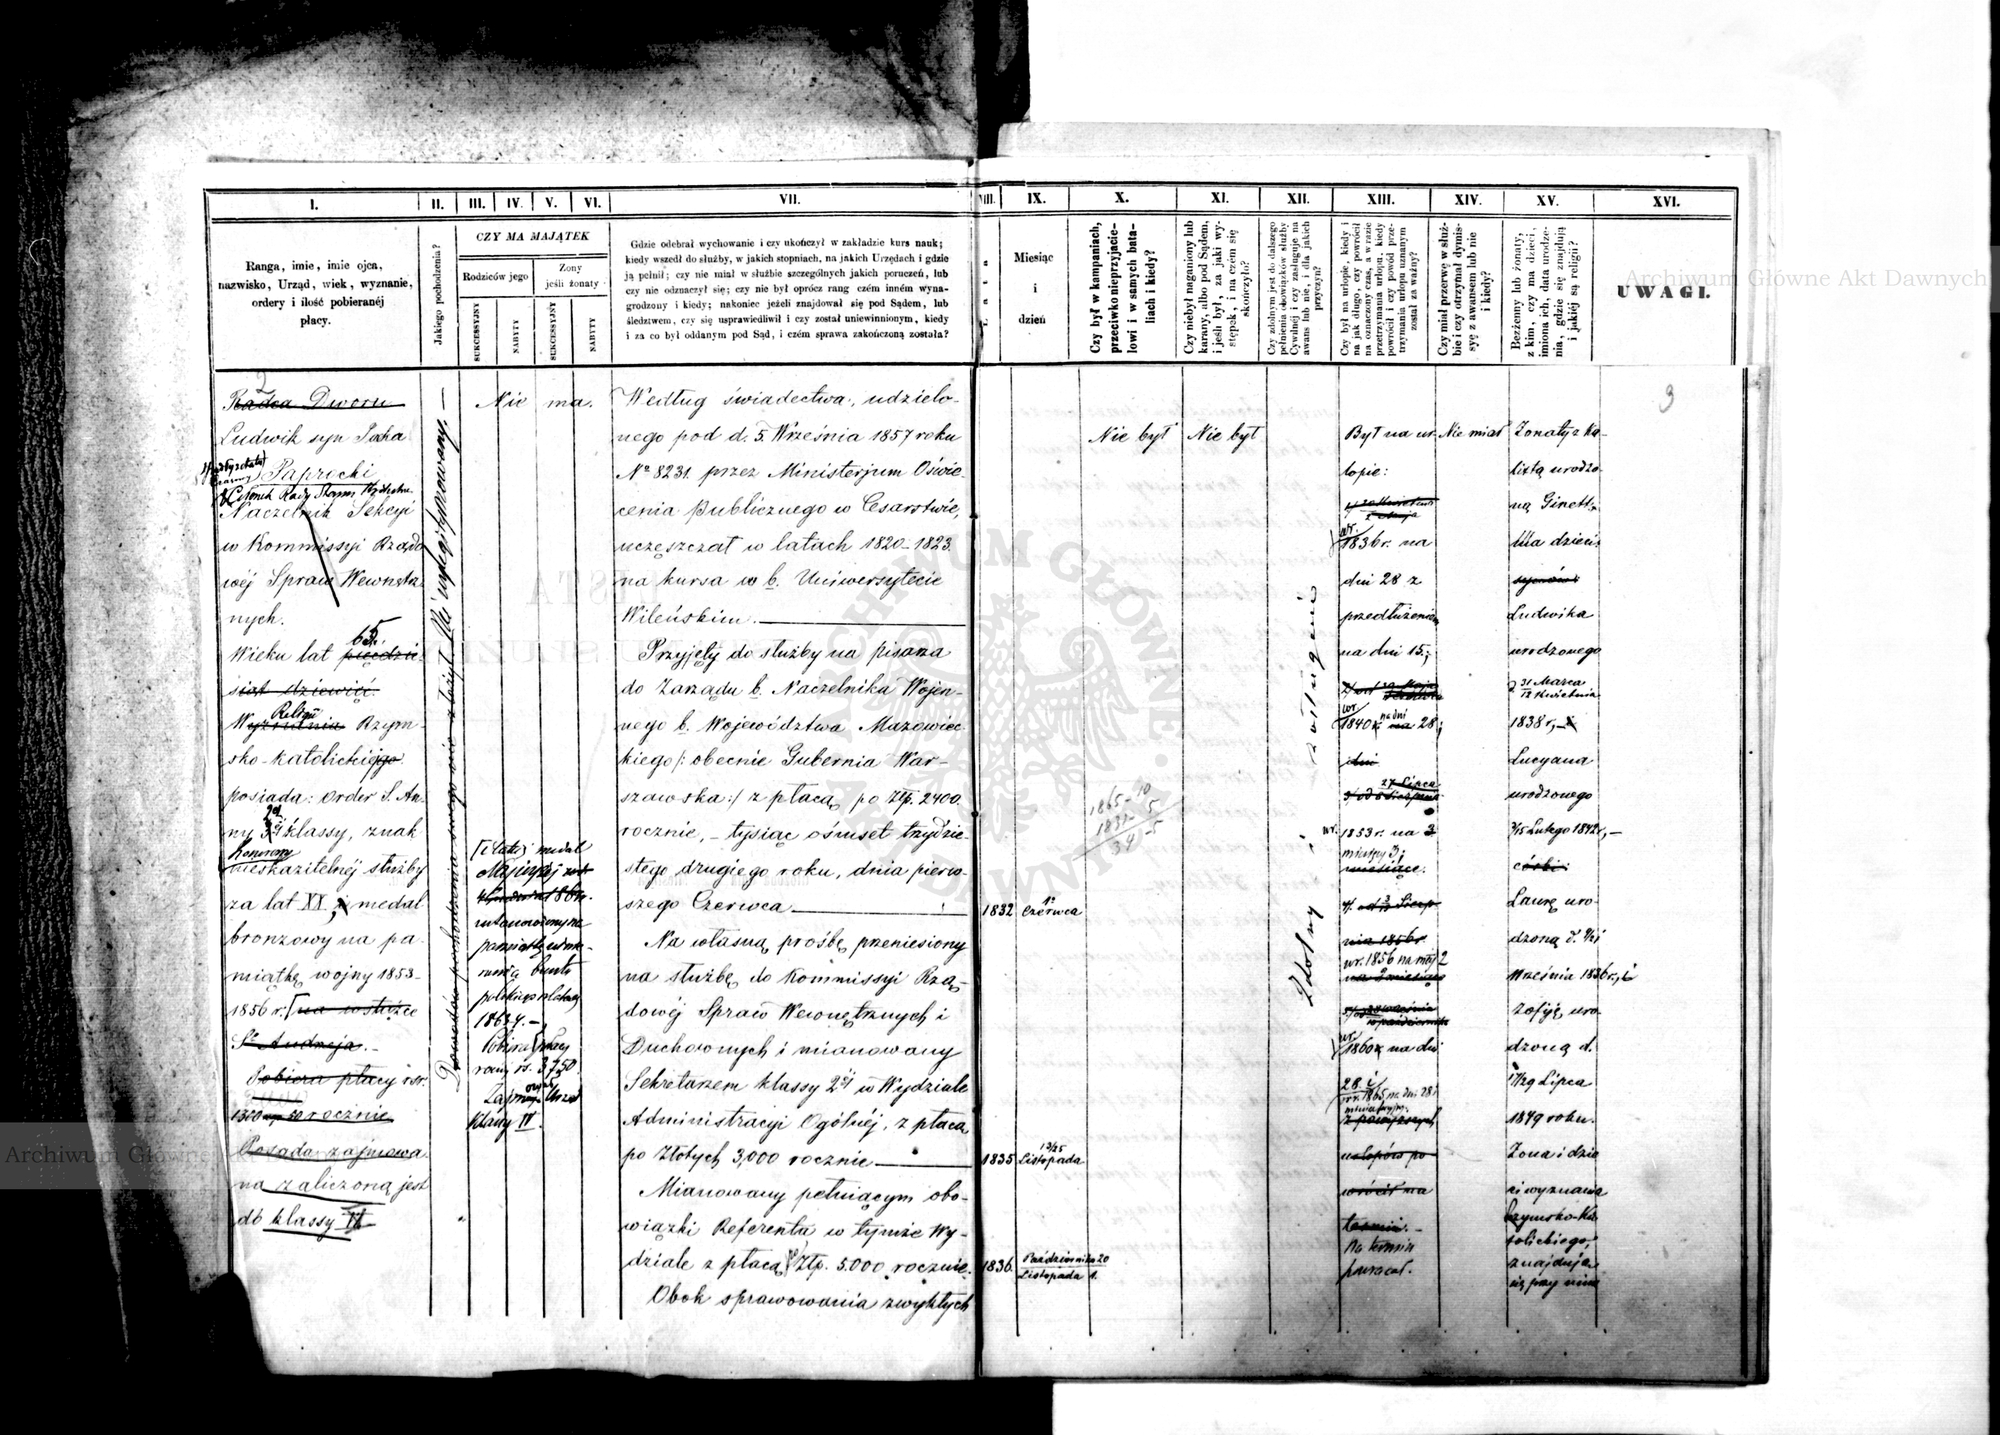 I.
II.
III.
IV.
V.
VI.
VII.
VIII.
IX.
X.
XI.
XII.
XIII.
XIV.
XV.
XVI.
Ranga, imie, imie ojca,
nazwisko, Urząd, wiek, wyznanie,
ordery i ilość pobieranéj
płacy.
Jakiego pochodzenia?
CZY MA MAJĄTEK
Rodziców jego
Żony
jeśli żonaty
SUKCESSYJNY
NABYTY
SUKCESSYJNY
NABYTY
Gdzie odebrał wychowanie i czy ukończył w zakładzie kurs nauk;
kiedy wszedł do służby, w jakich stopniach, na jakich Urzędach i gdzie
ją pełnił; czy nie miał w służbie szczególnych jakich poruczeń, lub
czy nie odznaczył się; czy nie był oprócz rang czém inném wyna-
grodzony i kiedy; nakoniec jeżeli znajdował się pod Sądem, lub
śledztwem, czy się usprawiedliwił i czy został uniewinnionym, kiedy
i za co był oddanym pod Sąd, i czém sprawa zakończoną została?
Miesiąc
i
dzień
Czy był w kampaniach,
przeciwko nieprzyjacie-
lowi i w samych bata-
liach i kiedy?
Czy niebył naganiony lub
karany, albo pod Sądem,
i jeśli był, za jaki wy-
stępek, i na czém się
skończyło?
Czy zdolnym jest do dalszego
pełnienia obowiązków służby
Cywilnéj i czy zasługuje na
awans lub nie, i dla jakich
przyczyn?
Czy był na urlopie, kiedy i
na jak długo, czy powrócił
na oznaczony czas, a w razie
przetrzymania urlopu, kiedy
powrócił i czy powód prze-
trzymania urlopu uznanym
został za ważny?
Czy miał przerwę w służ-
bie i czy otrzymał dymis-
syę z awansem lub nie
i kiedy?
Bezżenny lub żonaty,
z kim, czy ma dzieci,
imiona ich, data urodze-
nia, gdzie się znajdują
i jakiéj są religii?
UWAGI.
3
Radca Dworu
Ludwik syn
Paprocki
Członek Rady Stanu
Naczelnik Sekcyi
w Kommissyi Rządo
wéj Spraw Wewnętrz
nych.
65
Wieku lat pięćdzie-
siąt dziewięć.
Religii
Wyznania Rzym-
sko-katolickiego
posiada: order S. An-
ny 3éj klassy, znak
nieskazitelnéj służby
za lat XX, i medal
bronzowy na pa-
miątkę wojny 1853-
1856 r. na wstążce
Sgo Andrzeja.
Pobiera płacy rsr.
1350 rocznie
Posada zajmowa
na zaliczoną jest
do klassy VI
Dowodów pochodzenia swego nie złożył. Nie wylegitymowany.
Nie ma.
medal
ustanowiony na
pamiątkę uśmie-
rzenia buntu
polskiego
1863/4.
Pobiera płacy
rs. 3750.
Zajmuje Urząd
klassy IV.
Według świadectwa, udzielo-
nego pod d. 5. Września 1857 roku
No 8231. przez Ministerjum Oświe
cenia publicznego w Cesarstwie,
uczęszczał w latach 1820-1823.
na kursa w b. Uniwersytecie
Wileńskim.
Przyjęty do służby na pisarza
do Zarządu b. Naczelnika Wojen-
nego b. Województwa Mazowiec
kiego /: obecnie Gubernia War-
szawska :/ z płacą po Złp. 2400.
rocznie, tysiąc ośmset trzydzie-
stego drugiego roku, dnia pierw-
szego Czerwca
1832
1o
Czerwca
Na własną prośbę przeniesiony
na służbę do Kommissyi Rzą-
dowéj Spraw Wewnętrznych i
Duchownych i mianowany
Sekretarzem klassy 2éj w Wydziale
Administracyi Ogólnéj, z płacą
po Złotych 3,000 rocznie
1835
13/25
Listopada
Mianowany pełniącym obo-
wiązki Referenta w tymże Wy-
dziale z płacą Złp. 5.000 rocznie.
1836.
Października 20
Listopada 1.
Obok sprawowania zwykłych
Nie był
1865-10
1831-5
34-5
Nie był
Zdolny i zasługuje
Był na ur
lopie:
1836 r. na
dni 28 z
przedłużeniem
na dni 15;
1840 na dni 28;
dni
27 Lipca
1853 r. na 3
miesięcy 3;
miesiące.
nia 1856 r.
wr. 1856 na mcy 2
na 2 miesiące
1860 na dni
28 i
wr. 1865 na dni 28 i
z powyższych
urlopów po
wrócił na
termin.
Na termin
powrócił.
Nie miał
Żonaty z Ka-
urodzo
ną Ginett
Ma dzieci:
synów:
Ludwika
urodzonego
31 Marca
12 Kwietnia
1838 r,
Lucyana
urodzonego
3/15 Lutego 1842 r,
córki:
Laurę uro-
dzoną d.
Września 1836 r., i
Zofiję uro
dzoną d.
17/29 Lipca
1849 roku.
Żona i dzie
ci wyznania
Rzymsko-Ka
tolickiego,
znajdują
się przy nim
Archiwum Główne Akt Dawnych
Archiwum Główne
ARCHIWUM GŁÓWNE AKT DAWNYCH